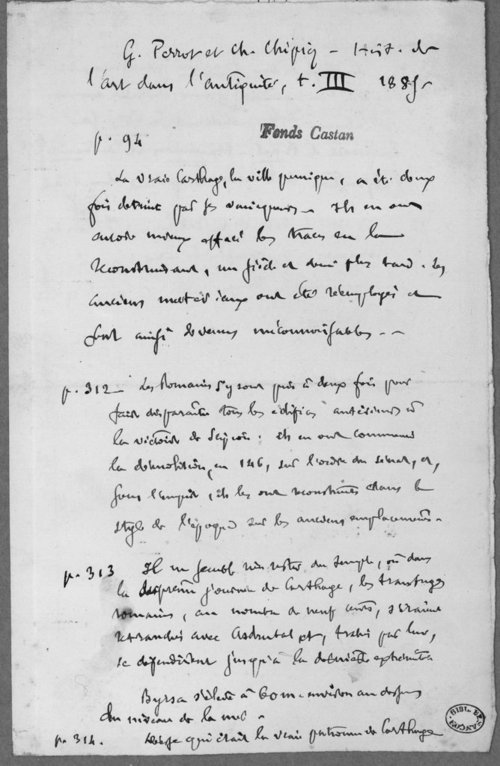 G. Perrot et Ch. Chipiez – Hist. de
l'art dans l'antiquité, t. III 1885
Fonds Castan
p. 94
La vraie Carthage, la ville punique, a été deux
fois détruite par ses vainqueurs – Ils en ont
encore mieux effacé les traces en la
reconstruisant, un siècle et demi plus tard. Les
anciens matériaux ont été réemployés et
sont ainsi devenus méconnaissables – –
p. 312 – Les Romains s'y sont pris à deux fois pour
faire disparaître tous les édifices antérieurs à
la victoire de Scipion : ils en ont commencé
la démolition, en 146, sur l'ordre du sénat, et,
sous l'empire, ils les ont reconstruits dans le
style de l'époque sur les anciens emplacements –
p. 313 Il ne semble rien rester du temple, où dans
la suprême journée de Carthage, les transfuges
romains, au nombre de neuf cents, s'étaient
retranchés avec Asdrubal et, trahis par lui,
se défendirent jusqu'à la dernière extrémité
Byrsa s'élève à 60 m environ au dessus
du niveau de la mer –
p. 314. qui était la vraie patronne de Carthage